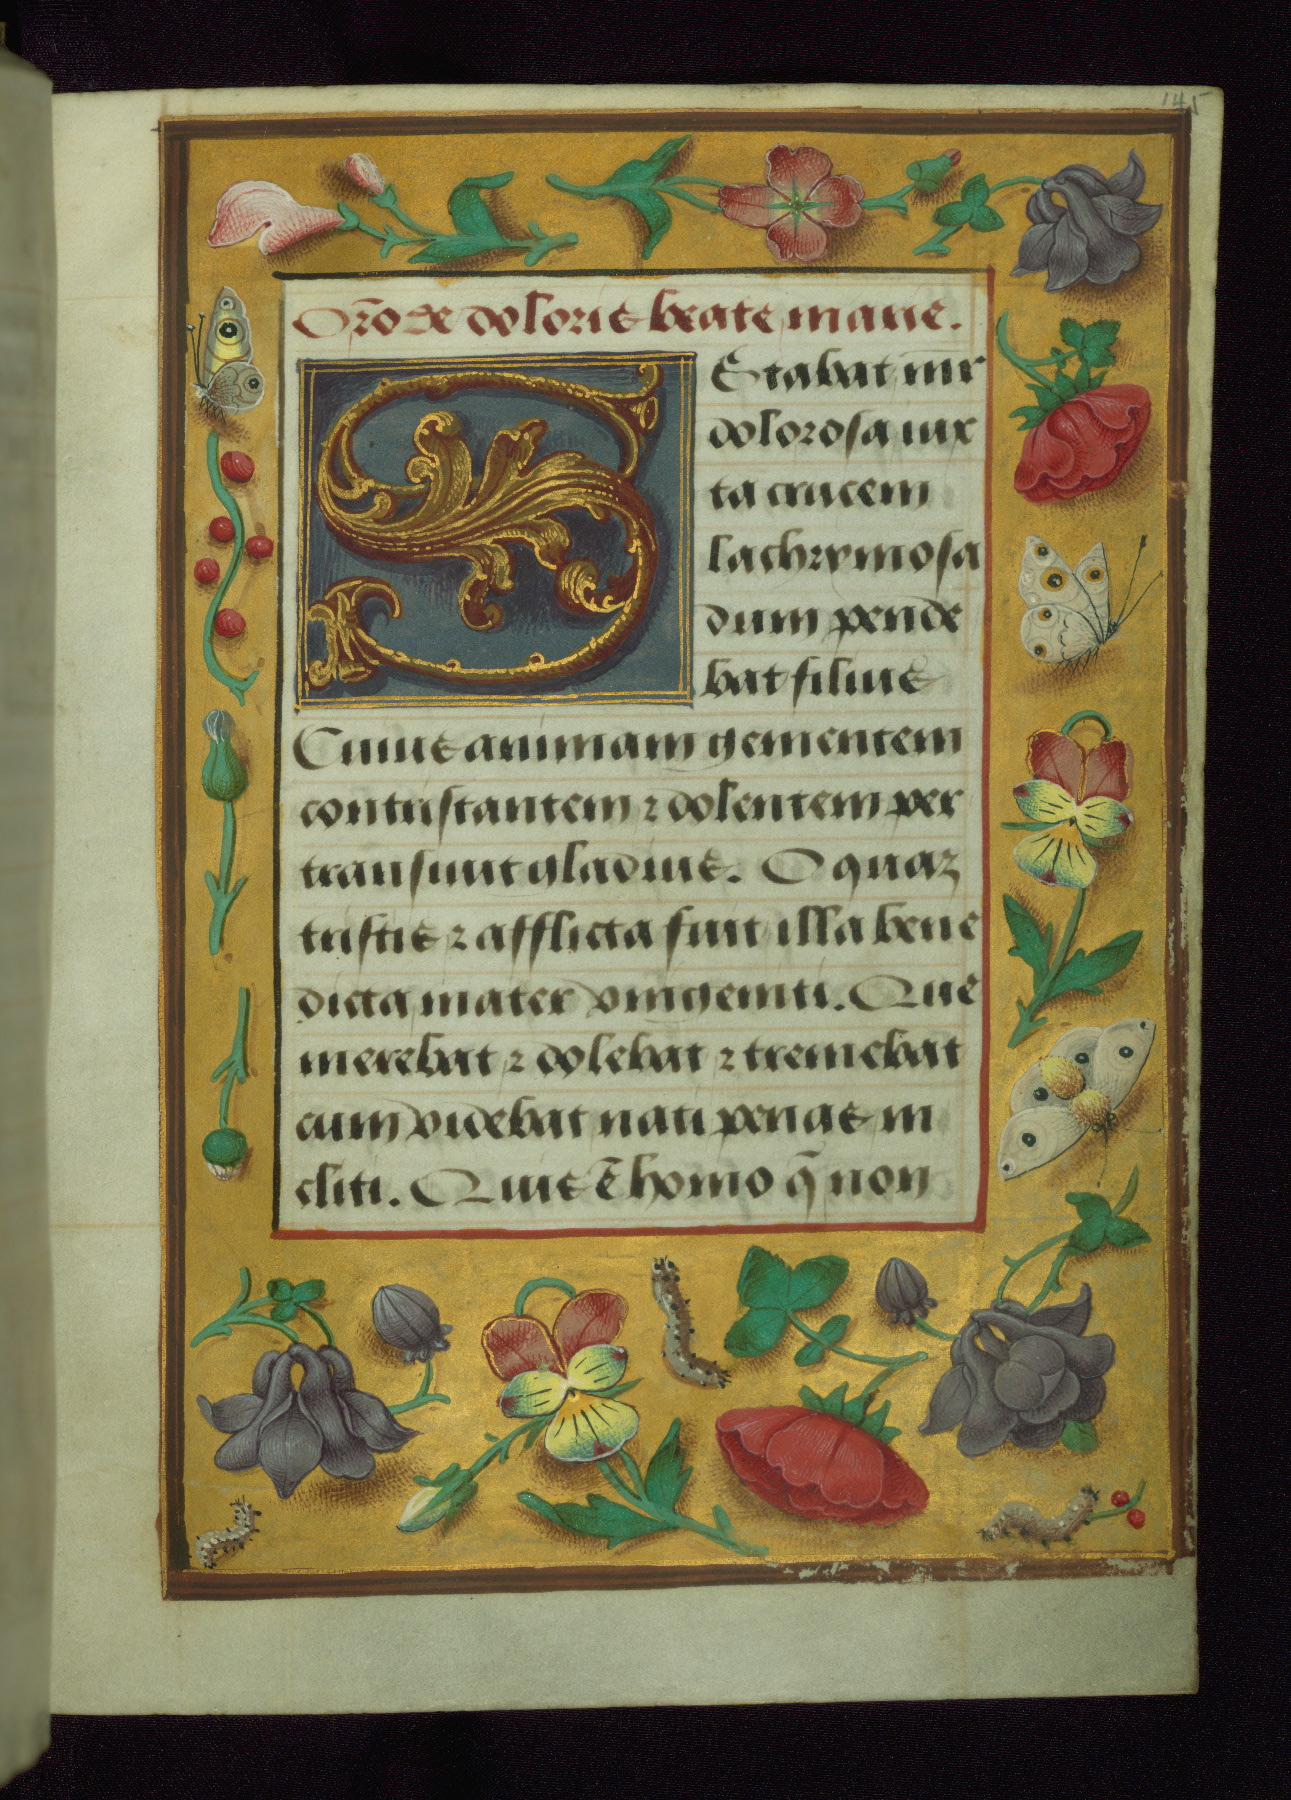 145
Orō de doloris beate marie.
Stabat mr
dolorosa iux
ta crucem
lachrymosa
dum pende
bat filius
Cuius animam gementem
contristantem ⁊ dolentem per
transiuit gladius. O quaʒ
tristis ⁊ afflicta fuit illa bene
dicta mater vnigeniti. Que
merebat ⁊ dolebat ⁊ tremebat
cum videbat nati penas in
cliti. Quis ē homo q̄ non